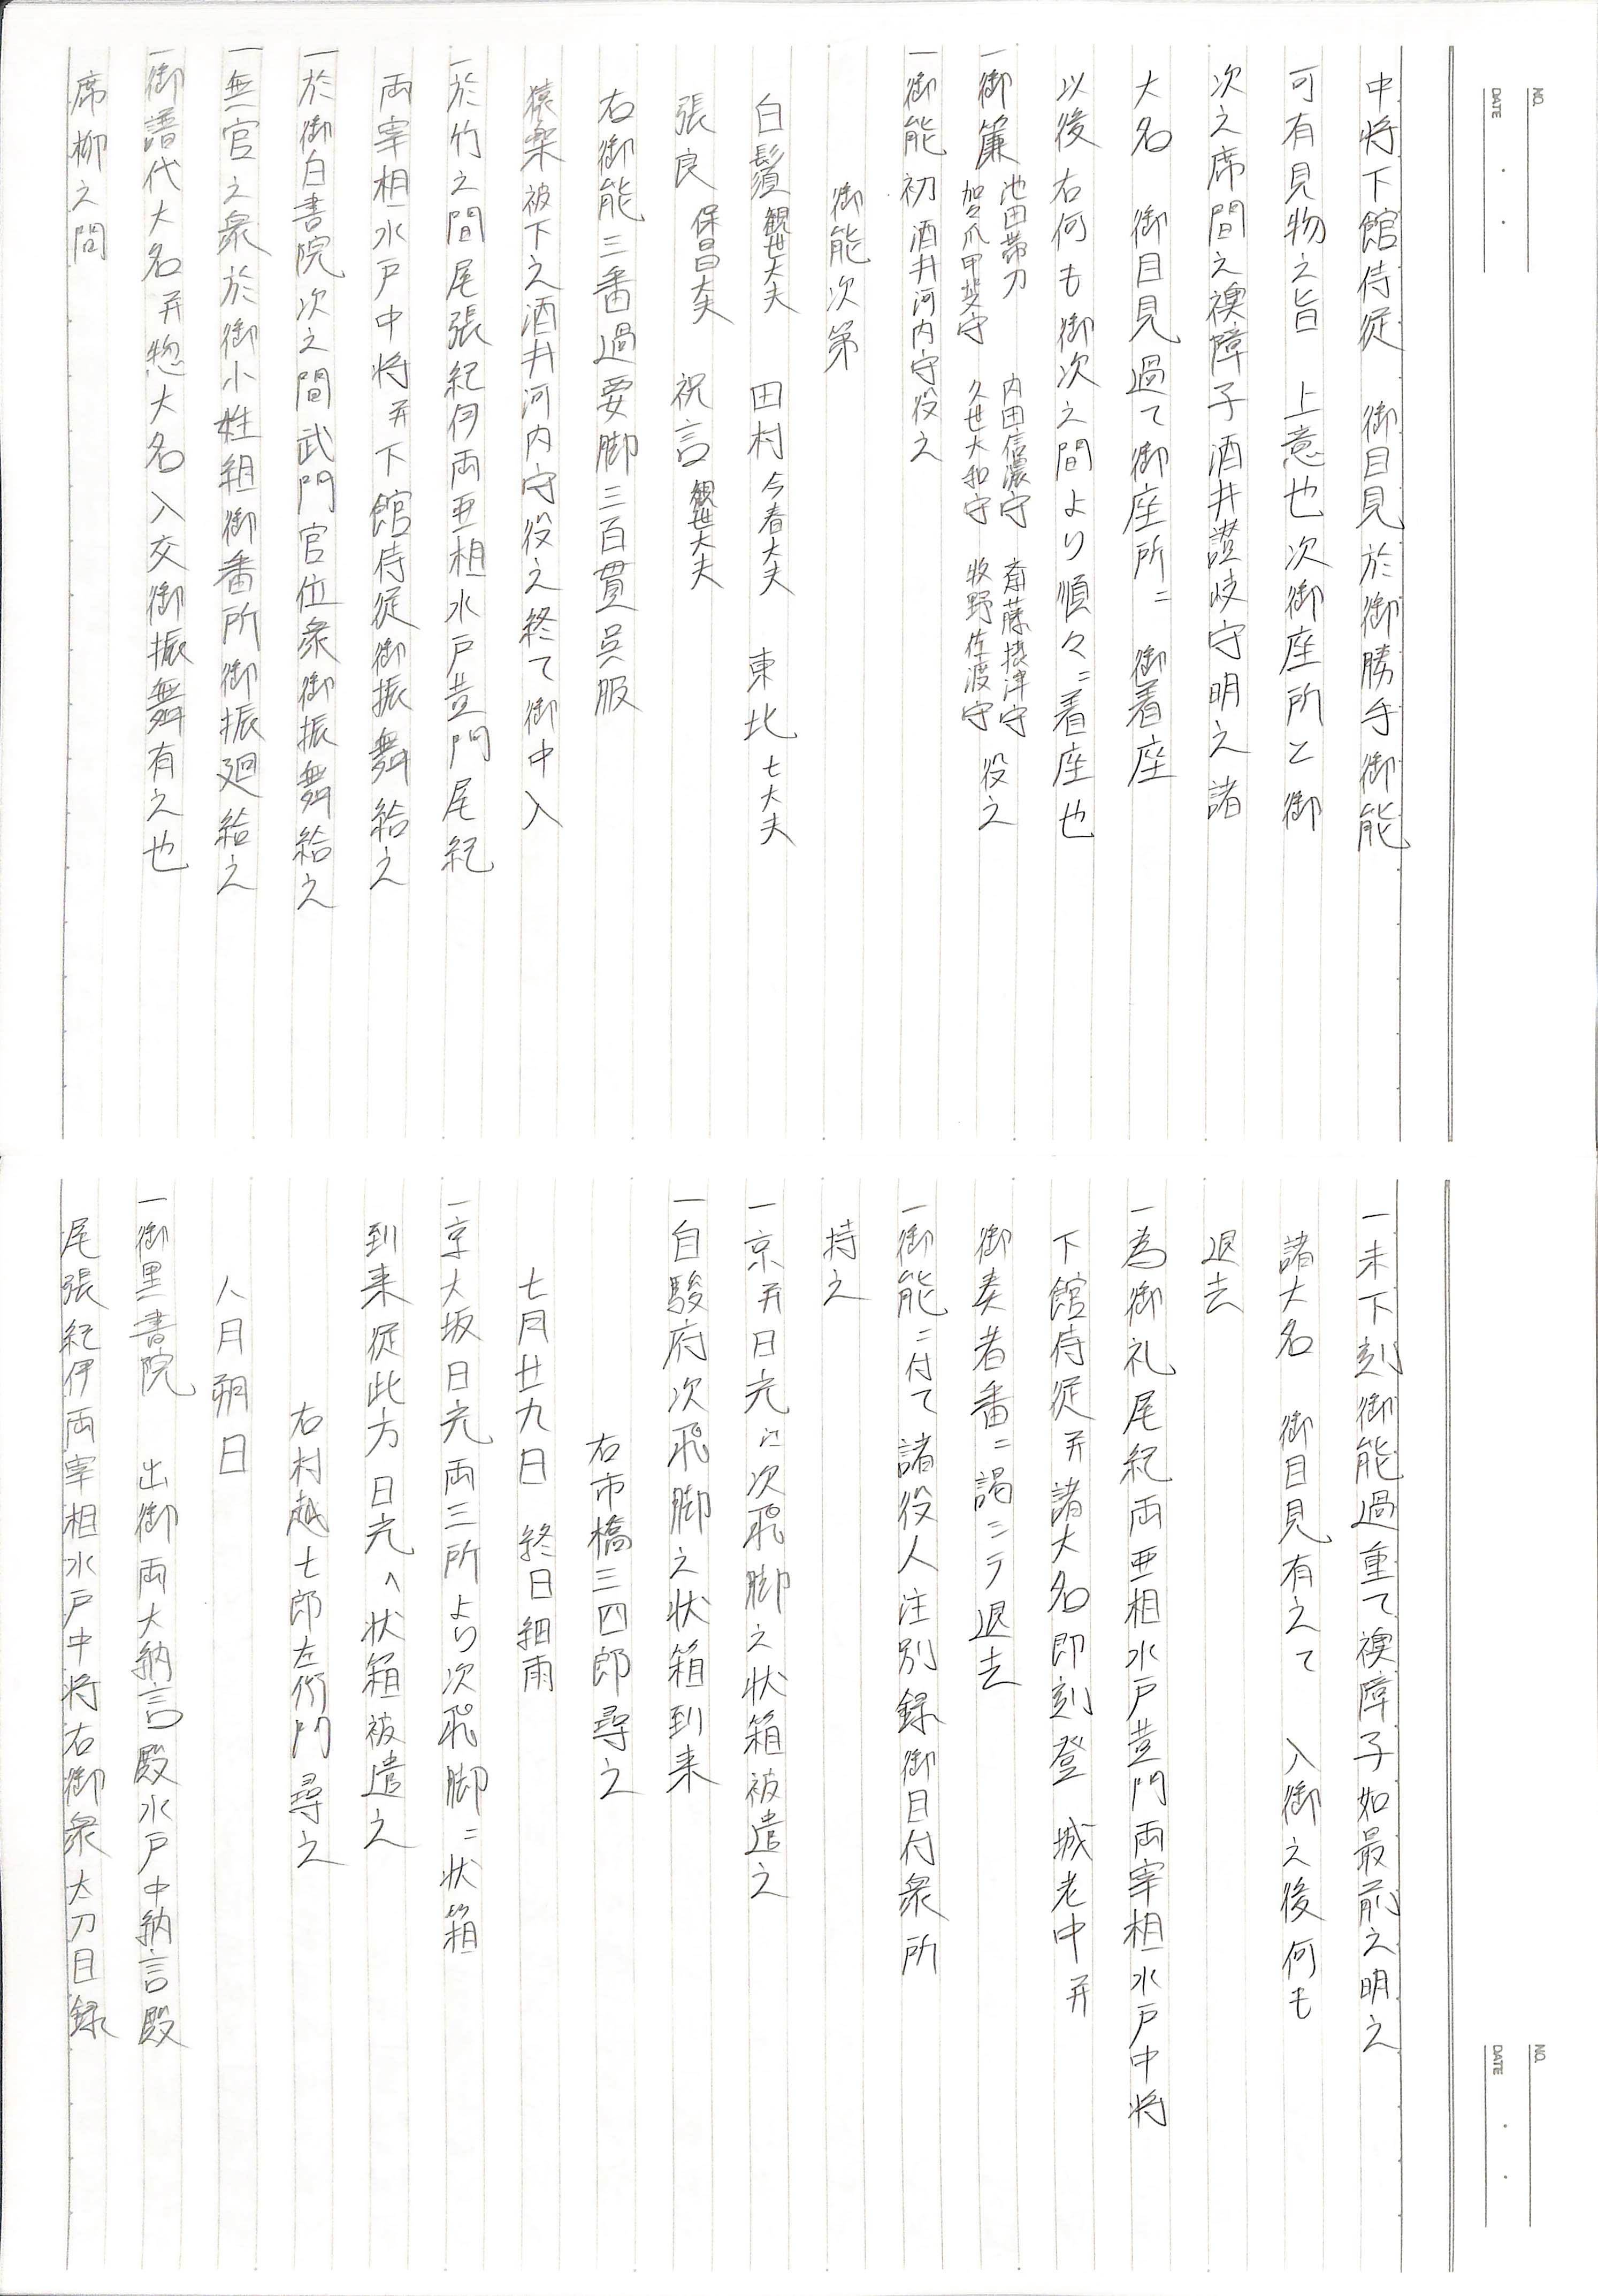 NO.
DATE
中将下館侍従　御目見於御勝手御能
可有見物之旨　上意也次御座所と御
次之席間之襖障子酒井讃岐守明之諸
大名　御目見過て御座所ニ　御着座
以後右何も御次之間より順々ニ着座也
一御簾　池田帯刀　内田信濃守　斎藤摂津守　役之
加々爪甲斐守　久世大和守　牧野佐渡守
一御能初酒井河内守役之
御能次第
白鬚　観世大夫　田村　今春大夫　東北　七大夫
張良　保昌大夫　祝言　観世大夫
右御能三番過要脚三百貫呉服
猿楽被下之酒井河内守役之終て御中入
一於竹之間尾張紀伊両亜相水戸黄門尾紀
両宰相水戸中将并下館侍従御振舞給之
一於御白書院次之間武門官位衆御振舞給之
一無官之衆於御小姓組御番所御振廻給之
一御譜代大名并惣大名入交御振舞有之也
席柳之間
NO.
DATE
一未下刻御能過重て襖障子如最前之明之
諸大名　御目見有之て　入御之後何も
退去
一為御礼尾紀両亜相水戸黄門両宰相水戸中将
下館侍従并諸大名即刻登　城老中并
御奏者番ニ謁ニテ退去
一御能ニ付て諸役人注別録御目付衆所
持之
一京并日光江次飛脚之状箱被遣之
一自駿府次飛脚之状箱到来
右市橋三四郎尋之
七月廿九日　終日細雨
一京大坂日光両三所より次飛脚ニ状箱
到来従此方日光へ状箱被遣之
右村越七郎左衛門尋之
八月朔日
一御黒書院　出御両大納言殿水戸中納言殿
尾張紀伊両宰相水戸中将右御衆太刀目録